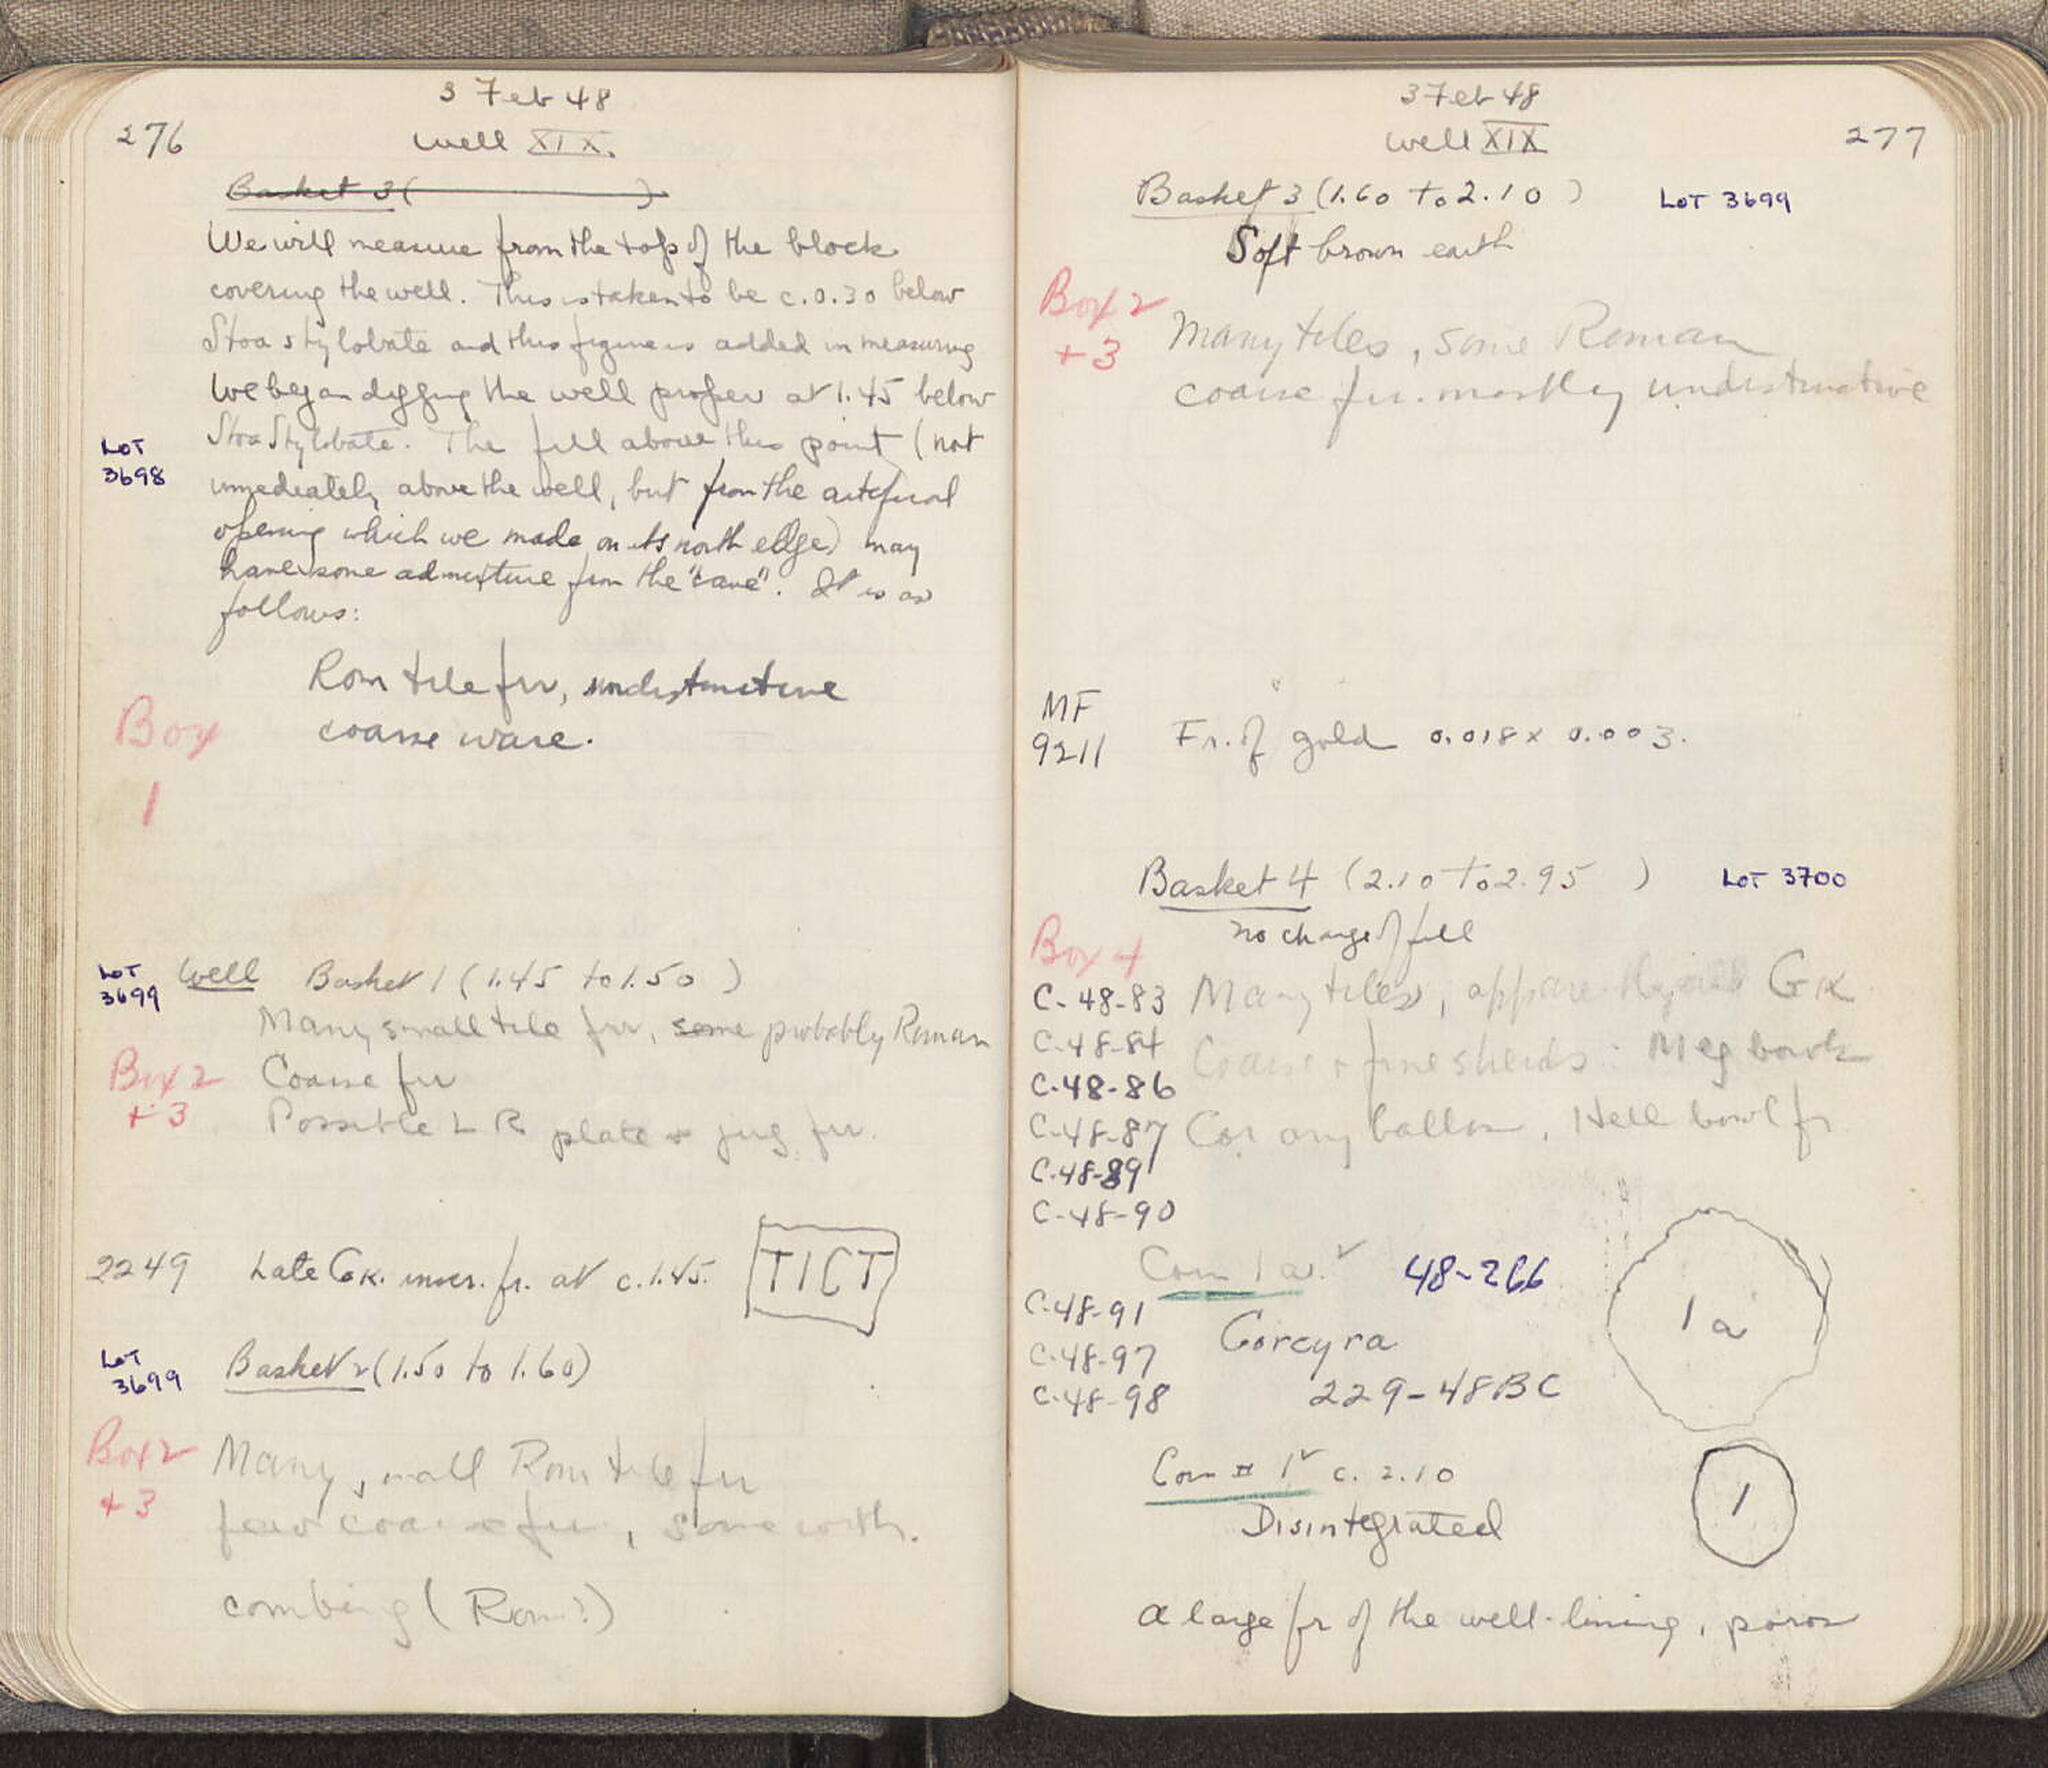 276
3 Feb 48
Well XIX.
Basket 3 ( )
We will measure from the top of the block
covering the well. This is taken to be c. 0.30 below
Stoa stylobate and this figure is added in measuring
We began digging the well proper at 1.45 below
Stoa Stylobate. The fill above this point (not
LOT
3698
immediately above the well, but from the artificial
opening which we made on its north edge) may
have some admixture from the "cave". It is as
follows:
Rom tile frr, undistinctive
coarse ware.
Box
1
LOT
3699
Well Basket 1 (1.45 to 1.50 )
Many small tile frr, some probably Roman
Box 2
+ 3
Coarse frr
Possible L R plate + jug frr.
2249 Late Gk. inscr. fr. at c. 1.45. TICT
LOT
3699
Basket 2 (1.50 to 1.60)
Box 2
+ 3
Many small Rom tile frr
few coarse frr, some with
combing (Rom?)
3 Feb 48
Well XIX
277
Basket 3 (1.60 to 2.10 ) LOT 3699
Soft brown earth
Box 2
+ 3
Many tiles, some Roman
coarse frr. mostly undistinctive
MF
9211
Fr. of gold 0.018 x 0.003.
Basket 4 (2.10 to 2.95 ) LOT 3700
no change of fill
Box 4
C-48-83 Many tiles, apparently all Gk
C-48-84
Coarse + fine sherds: Meg bowls
C-48-86
C-48-87 Cor aryballos, Hell bowl fr
C-48-89
C-48-90
Coin 1a. 48-266
1a
C-48-91
Corcyra
C-48-97
229-48 BC
C-48-98
Coin # 1 c. 2.10
1
Disintegrated
A large fr of the well-lining, poros